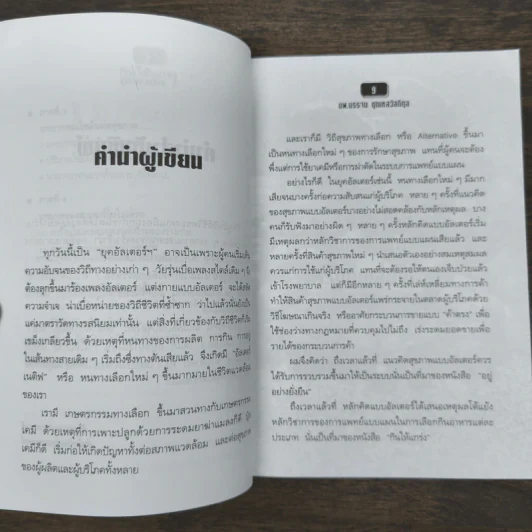 คำนำผู้เขียน
ทุกวันนี้เป็น “ยุคอัลเตอร์ฯ” อาจเป็นเพราะผู้คนเริ่มเห็น
ความอับจนของวิถีทางอย่างเก่า ๆ วัยรุ่นเบื่อเพลงสไตล์เดิม ๆ
ต้องลุกขึ้นมาร้องเพลงอัลเตอร์ แต่งกายแบบอัลเตอร์ จะได้
ความจำเจ น่าเบื่อหน่ายของวิถีชีวิตที่ซ้ำซาก ว่าไปแล้วนั่น
แต่มาตราวัดทางรสนิยมเท่านั้น แต่สิ่งที่เกี่ยวข้องกับวิถีชีวิต
เขม็งเกลียวขึ้น ด้วยเหตุที่หนทางของการผลิต การกิน การอยู่
ในเส้นทางสายเดิม ๆ เริ่มถึงซึ่งทางตันเสียแล้ว จึงเกิดมี “อัลเตอร์
เนตีฟ” หรือ หนทางเลือกใหม่ ๆ ขึ้นมากมายในชีวิตแวดล้อม
ของเรา
เรามี เกษตรกรรมทางเลือก ขึ้นมาสวนทางกับเกษตรกรรม
เคมี ด้วยเหตุที่การเพาะปลูกด้วยการระดมยาฆ่าแมลงก็ดี ปุ๋ย
เคมีก็ดี เริ่มก่อให้เกิดปัญหาทั้งต่อสภาพแวดล้อม และต่อสุขภาพ
ของผู้ผลิตและผู้บริโภคทั้งหลาย
9
นพ.บรรจบ ชุณหสวัสดิกุล
และเราก็มี วิถีสุขภาพทางเลือก หรือ Alternative ขึ้นมา
เป็นหนทางเลือกใหม่ ๆ ของการรักษาสุขภาพ แทนที่ผู้คนจะต้อง
พึ่งแต่การใช้ยาเคมีหรือการผ่าตัดในระบบการแพทย์แบบแผน
อย่างไรก็ดี ในยุคอัลเตอร์เช่นนี้ หนทางเลือกใหม่ ๆ มีมาก
เสียจนบางครั้งก่อความสับสนแก่ผู้บริโภค หลาย ๆ ครั้งที่แนวคิด
ของสุขภาพแบบอัลเตอร์บางอย่างไม่สอดคล้องกับหลักเหตุผล บาง
คนก็รับฟังมาอย่างผิด ๆ หลายครั้งหลักคิดแบบอัลเตอร์เริ่ม
มีเหตุผลกว่าหลักวิชาการของการแพทย์แบบแผนเสียแล้ว และ
หลายครั้งที่สินค้าสุขภาพใหม่ ๆ นำเสนอตัวเองอย่างสมเหตุสมผล
ควรแก่การใช้แก่ผู้บริโภค แทนที่จะต้องรอให้ตนเองเจ็บป่วยแล้ว
เข้าโรงพยาบาล แต่ก็มีอีกหลาย ๆ ครั้งที่เล่ห์เหลี่ยมทางการค้า
ทำให้สินค้าสุขภาพแบบอัลเตอร์แพร่กระจายในตลาดผู้บริโภคด้วย
วิธีโฆษณาเกินจริง หรืออาศัยกระบวนการขายแบบ “ค้าตรง” เพื่อ
ใช้ช่องว่างทางกฎหมายที่ควบคุมไปไม่ถึง เร่งระดมยอดขายเพื่อ
รายได้ของกระบวนการค้า
ผมจึงคิดว่า ถึงเวลาแล้วที่ แนวคิดสุขภาพแบบอัลเตอร์ควร
ได้รับการรวบรวมขึ้นมาให้เป็นระบบนั่นเป็นที่มาของหนังสือ “อยู่
อย่างยั่งยืน”
ถึงเวลาแล้วที่ หลักคิดแบบอัลเตอร์ได้เสนอเหตุผลโต้แย้ง
หลักวิชาการของการแพทย์แบบแผนในการเลือกกินอาหารแต่ละ
ประเภท นั่นเป็นที่มาของหนังสือ “กินให้แกร่ง”